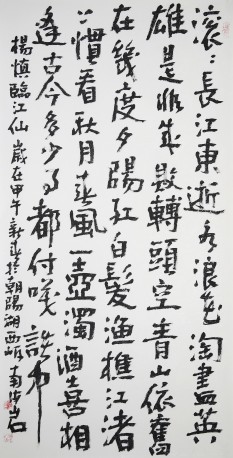 滚〻長江東逝水浪花淘盡英
雄是非成敗轉頭空青山依舊
在幾度夕陽紅白髮漁樵江渚
上慣看秋月春風一壺濁酒喜相
逢古今多少事都付笑談中
楊慎臨江仙 歲在甲午新春於朝陽湖西